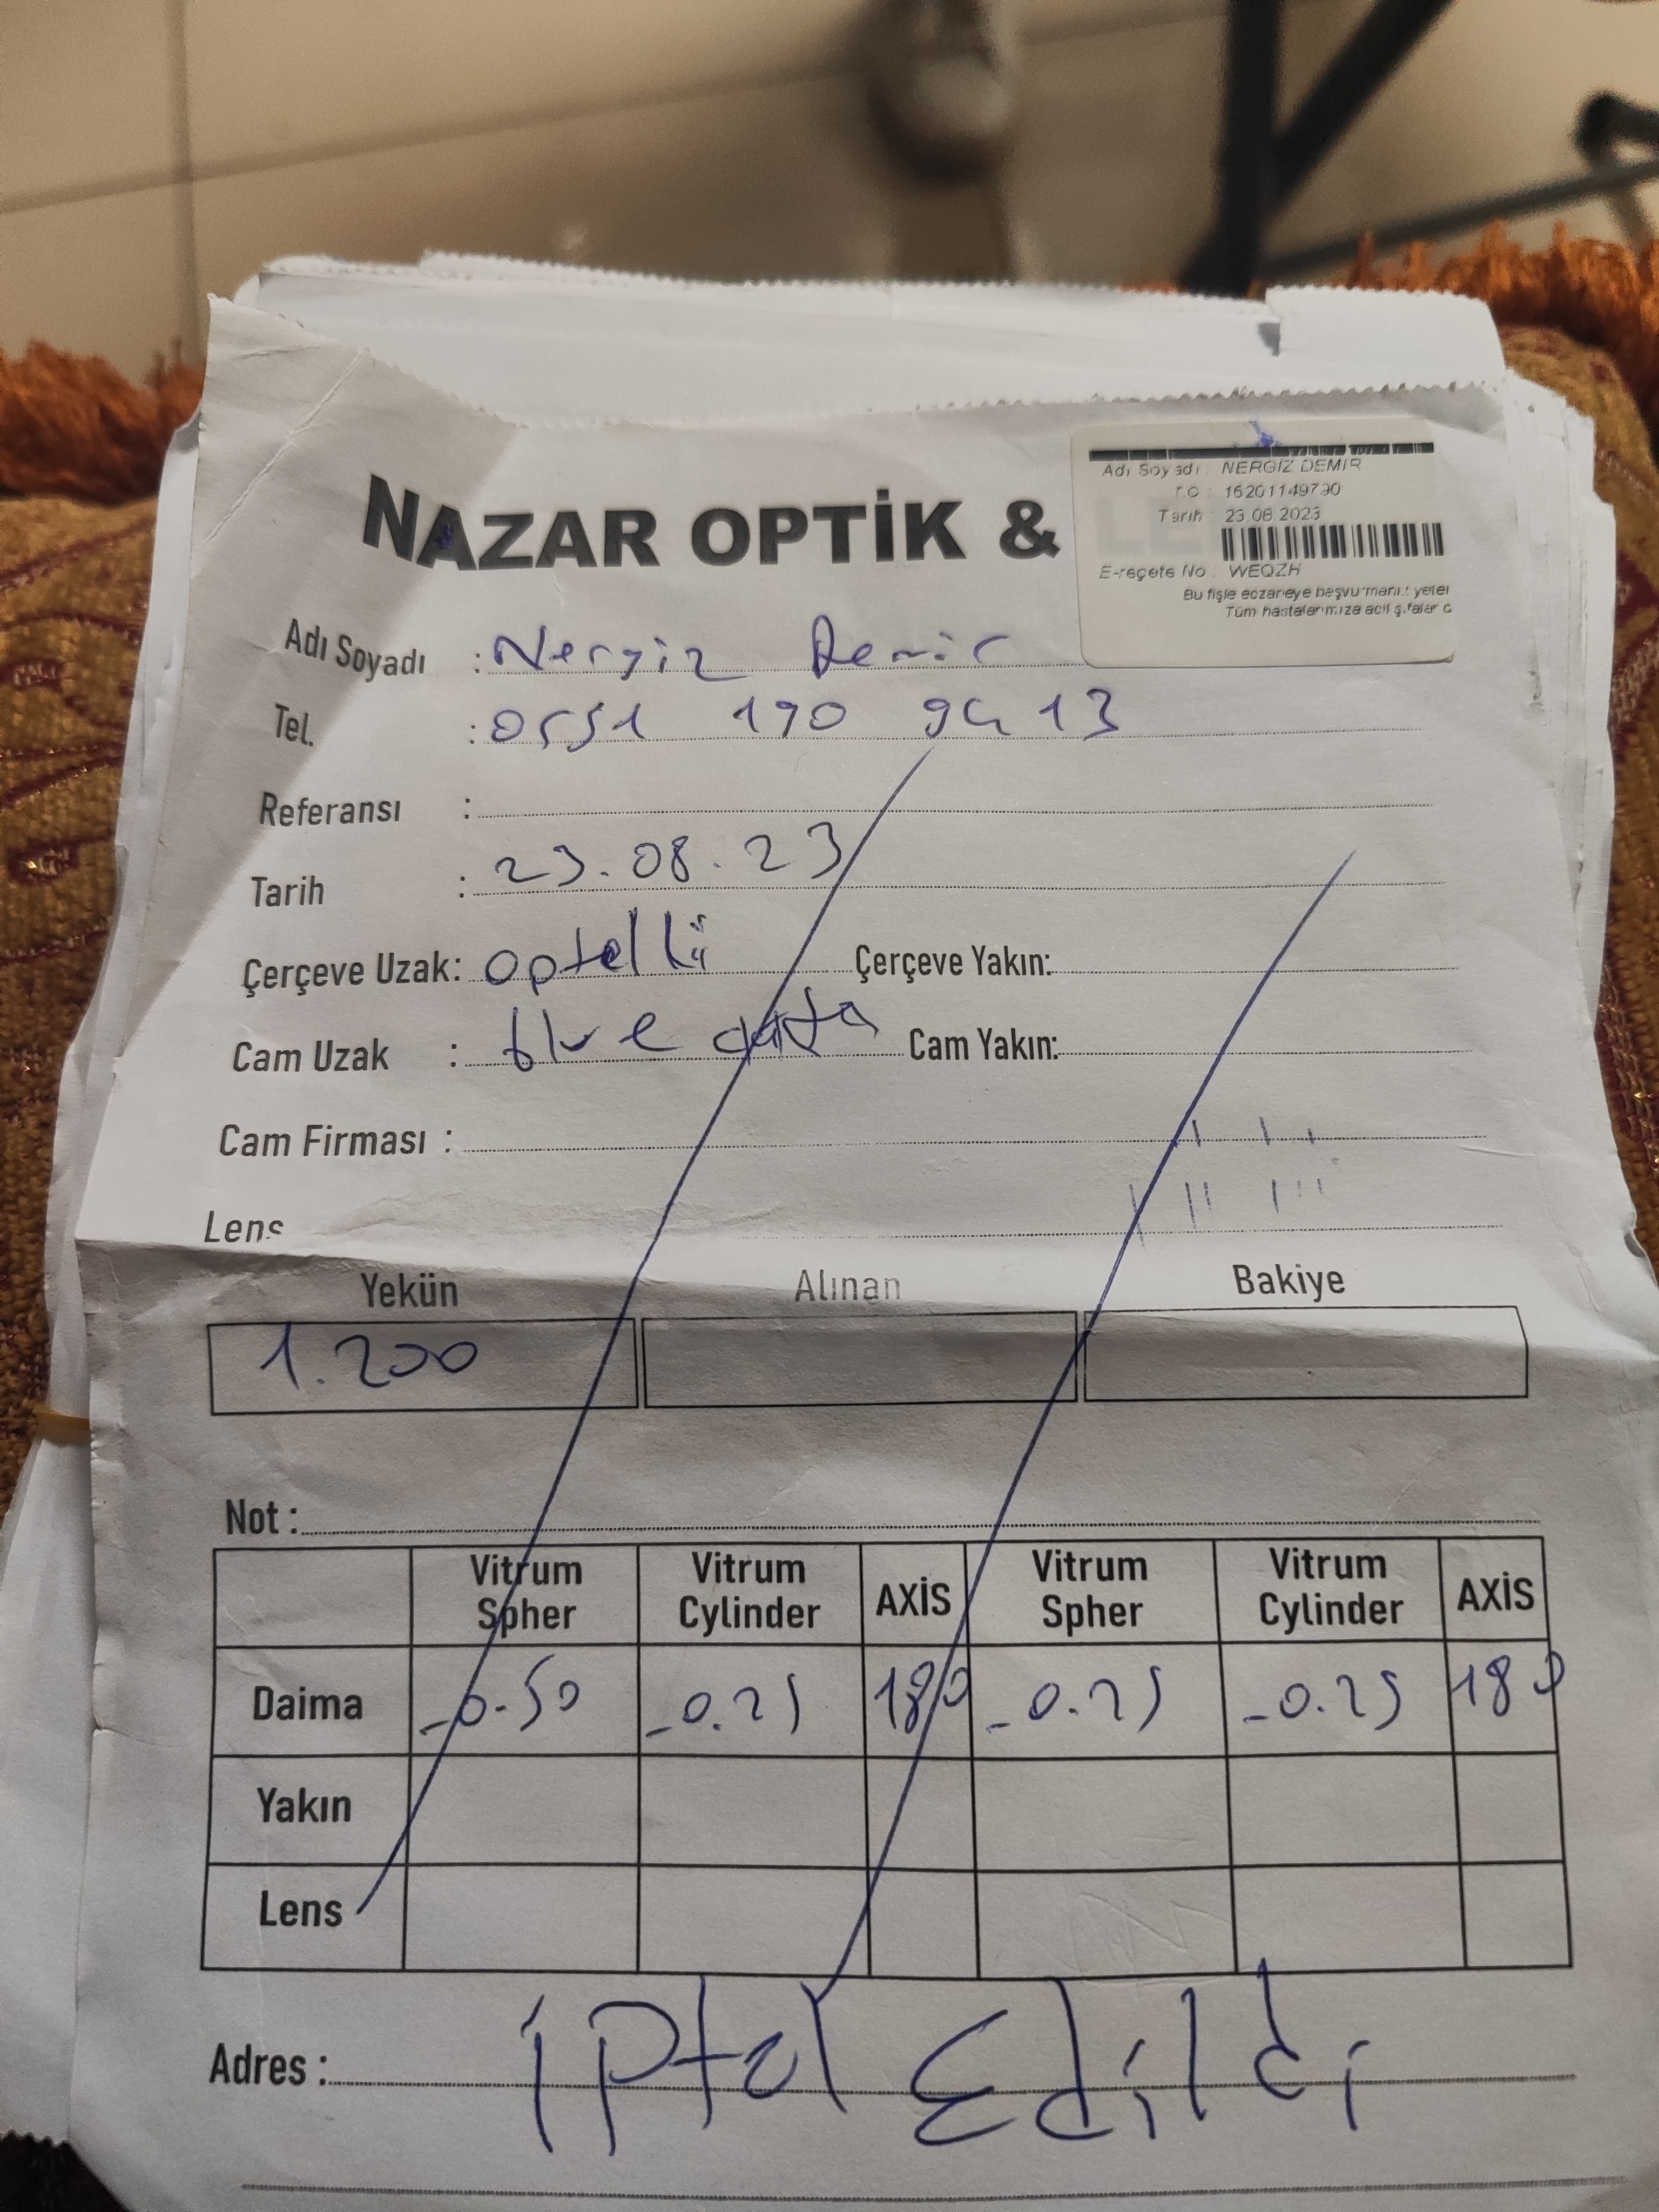 NAZAR OPTİK &
Adı Soyadı : NERGİZ DEMİR
T.C : 16201149790
Tarih : 23.08.2023
E-reçete No : WEQZH
Bu fişle eczaneye başvurmanız yeter
Tüm hastalarımıza acil şifalar d
Adı Soyadı : Nergiz Demir
Tel. : 0551 190 94 13
Referansı :
Tarih : 23.08.23
Çerçeve Uzak: optelli Çerçeve Yakın:
Cam Uzak : blue Cam Yakın:
Cam Firması :
Lens
Yekün Alınan Bakiye
1.200
Not :
Vitrum Spher Vitrum Cylinder AXİS Vitrum Spher Vitrum Cylinder AXİS
Daima -0.50 -0.25 180 -0.25 -0.25 180
Yakın
Lens
Adres : iptal Edildi